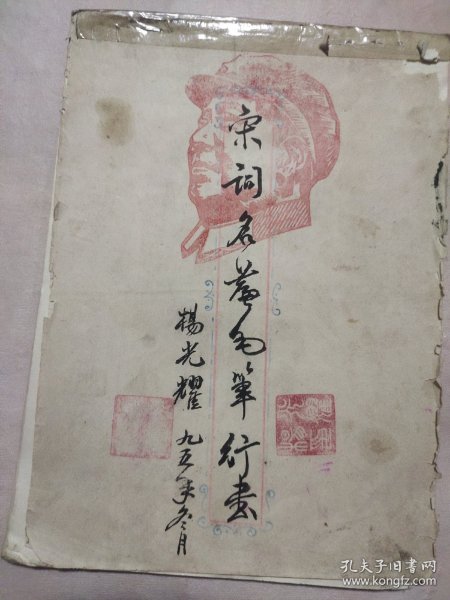 宋词名篇毛筆行书
楊光耀
九五年冬月
孔夫子旧书网
www.kongfz.com